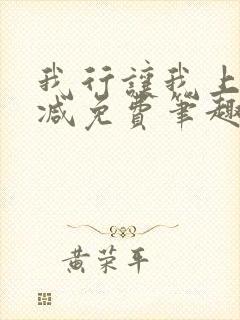 我行让我上
减免费笔趣
黄荣平